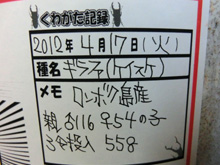 くわがた記録
2012年4月17日(火)
種名 ギラファ(ケイスケ)
メモ ロンボク島産
親♂116 ♀54の子
3令投入 558